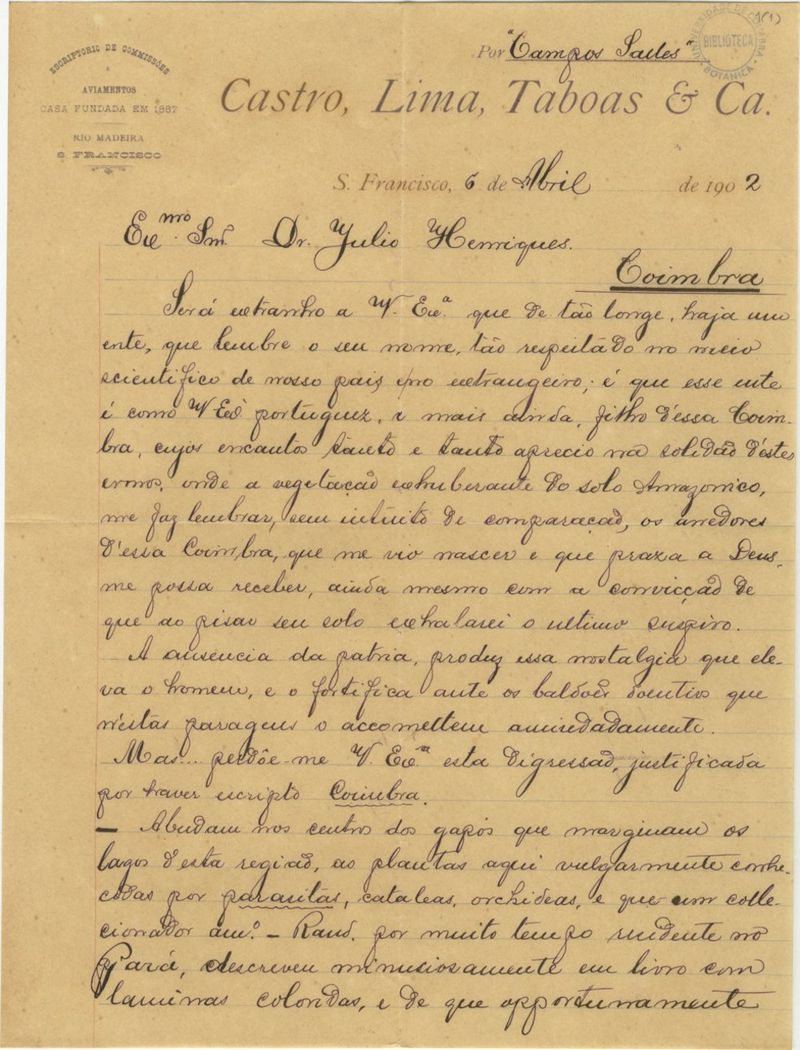 1(1)
UNIVERSIDADE DE COIMBRA
BIBLIOTECA
BOTANICA
Por "Campos Salles"
ESCRIPTORIO DE COMMISSÕES
E
AVIAMENTOS
CASA FUNDADA EM 1887
RIO MADEIRA
S. FRANCISCO
Castro, Lima, Taboas & Ca.
S. Francisco, 6 de Abril de 1902
Exmo. Snr. Dr. Julio Henriques.
Coimbra
Será extranho a V. Exa. que de tão longe, haja um
ente, que lembre o seu nome, tão respeitado no meio
scientifico de nosso pais, e no extrangeiro; é que esse ente
é como V Exa portuguez, e mais ainda, filho d'essa Coim-
bra, cujos encantos tanto e tanto aprecio na solidão d'estes
ermos, onde a vegetação exhuberante do solo Amazonico,
me faz lembrar, sem intuito de comparação, os arredores
d'essa Coimbra, que me vio nascer e que praza a Deus,
me possa receber, ainda mesmo com a convicção de
que ao pisar seu solo exhalarei o ultimo suspiro.
A ausencia da patria, produz essa nostalgia que ele-
va o homem, e o fortifica ante os baldões doentios que
n'estas paragens o accomettem amiudadamente.
Mas... perdôe-me V. Exa esta digressão, justificada
por haver escripto Coimbra.
— Abundam nos centros dos gapós que marginam os
lagos d'esta região, as plantas aqui vulgarmente conhe-
cidas por parasitas, cataleas, orchideas, e que um colle-
cionador amo. — Rand, por muito tempo residente no
Pará, descreveu minusiosamente em livro com
laminas coloridas, e de que opportunamente